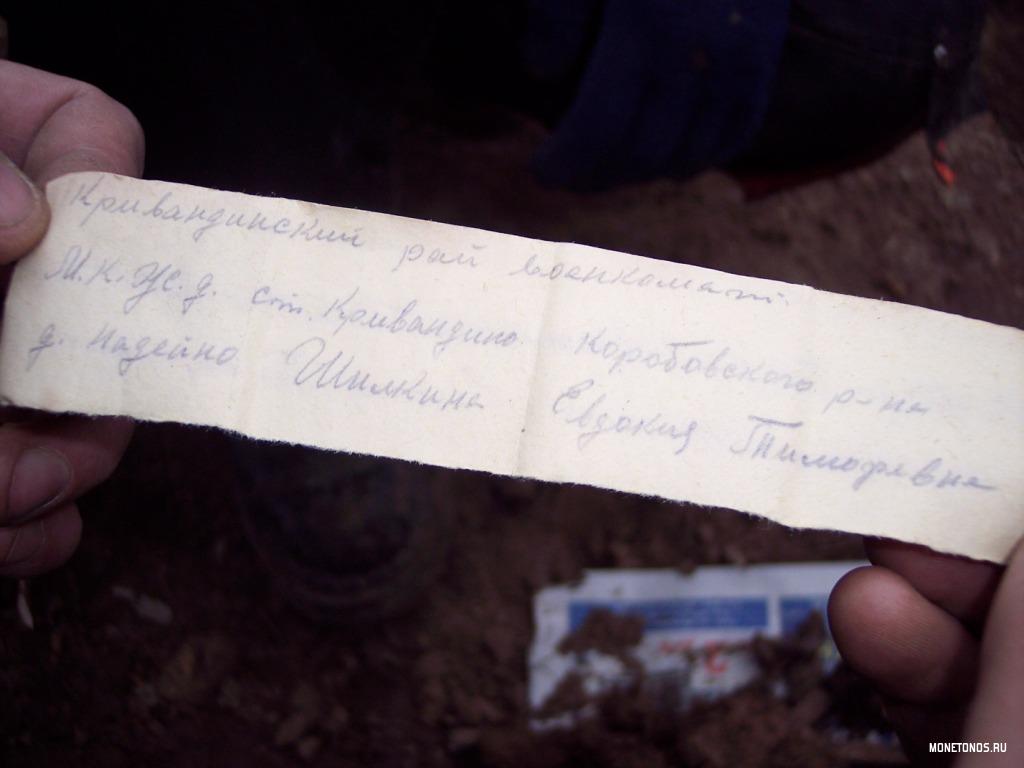 Кривандинский рай военкомат.
М.К.Ж.д. ст. Кривандино Коробовского р-на
д. Надейно Шилкина Евдокия Тимофевна
MONETONOS.RU